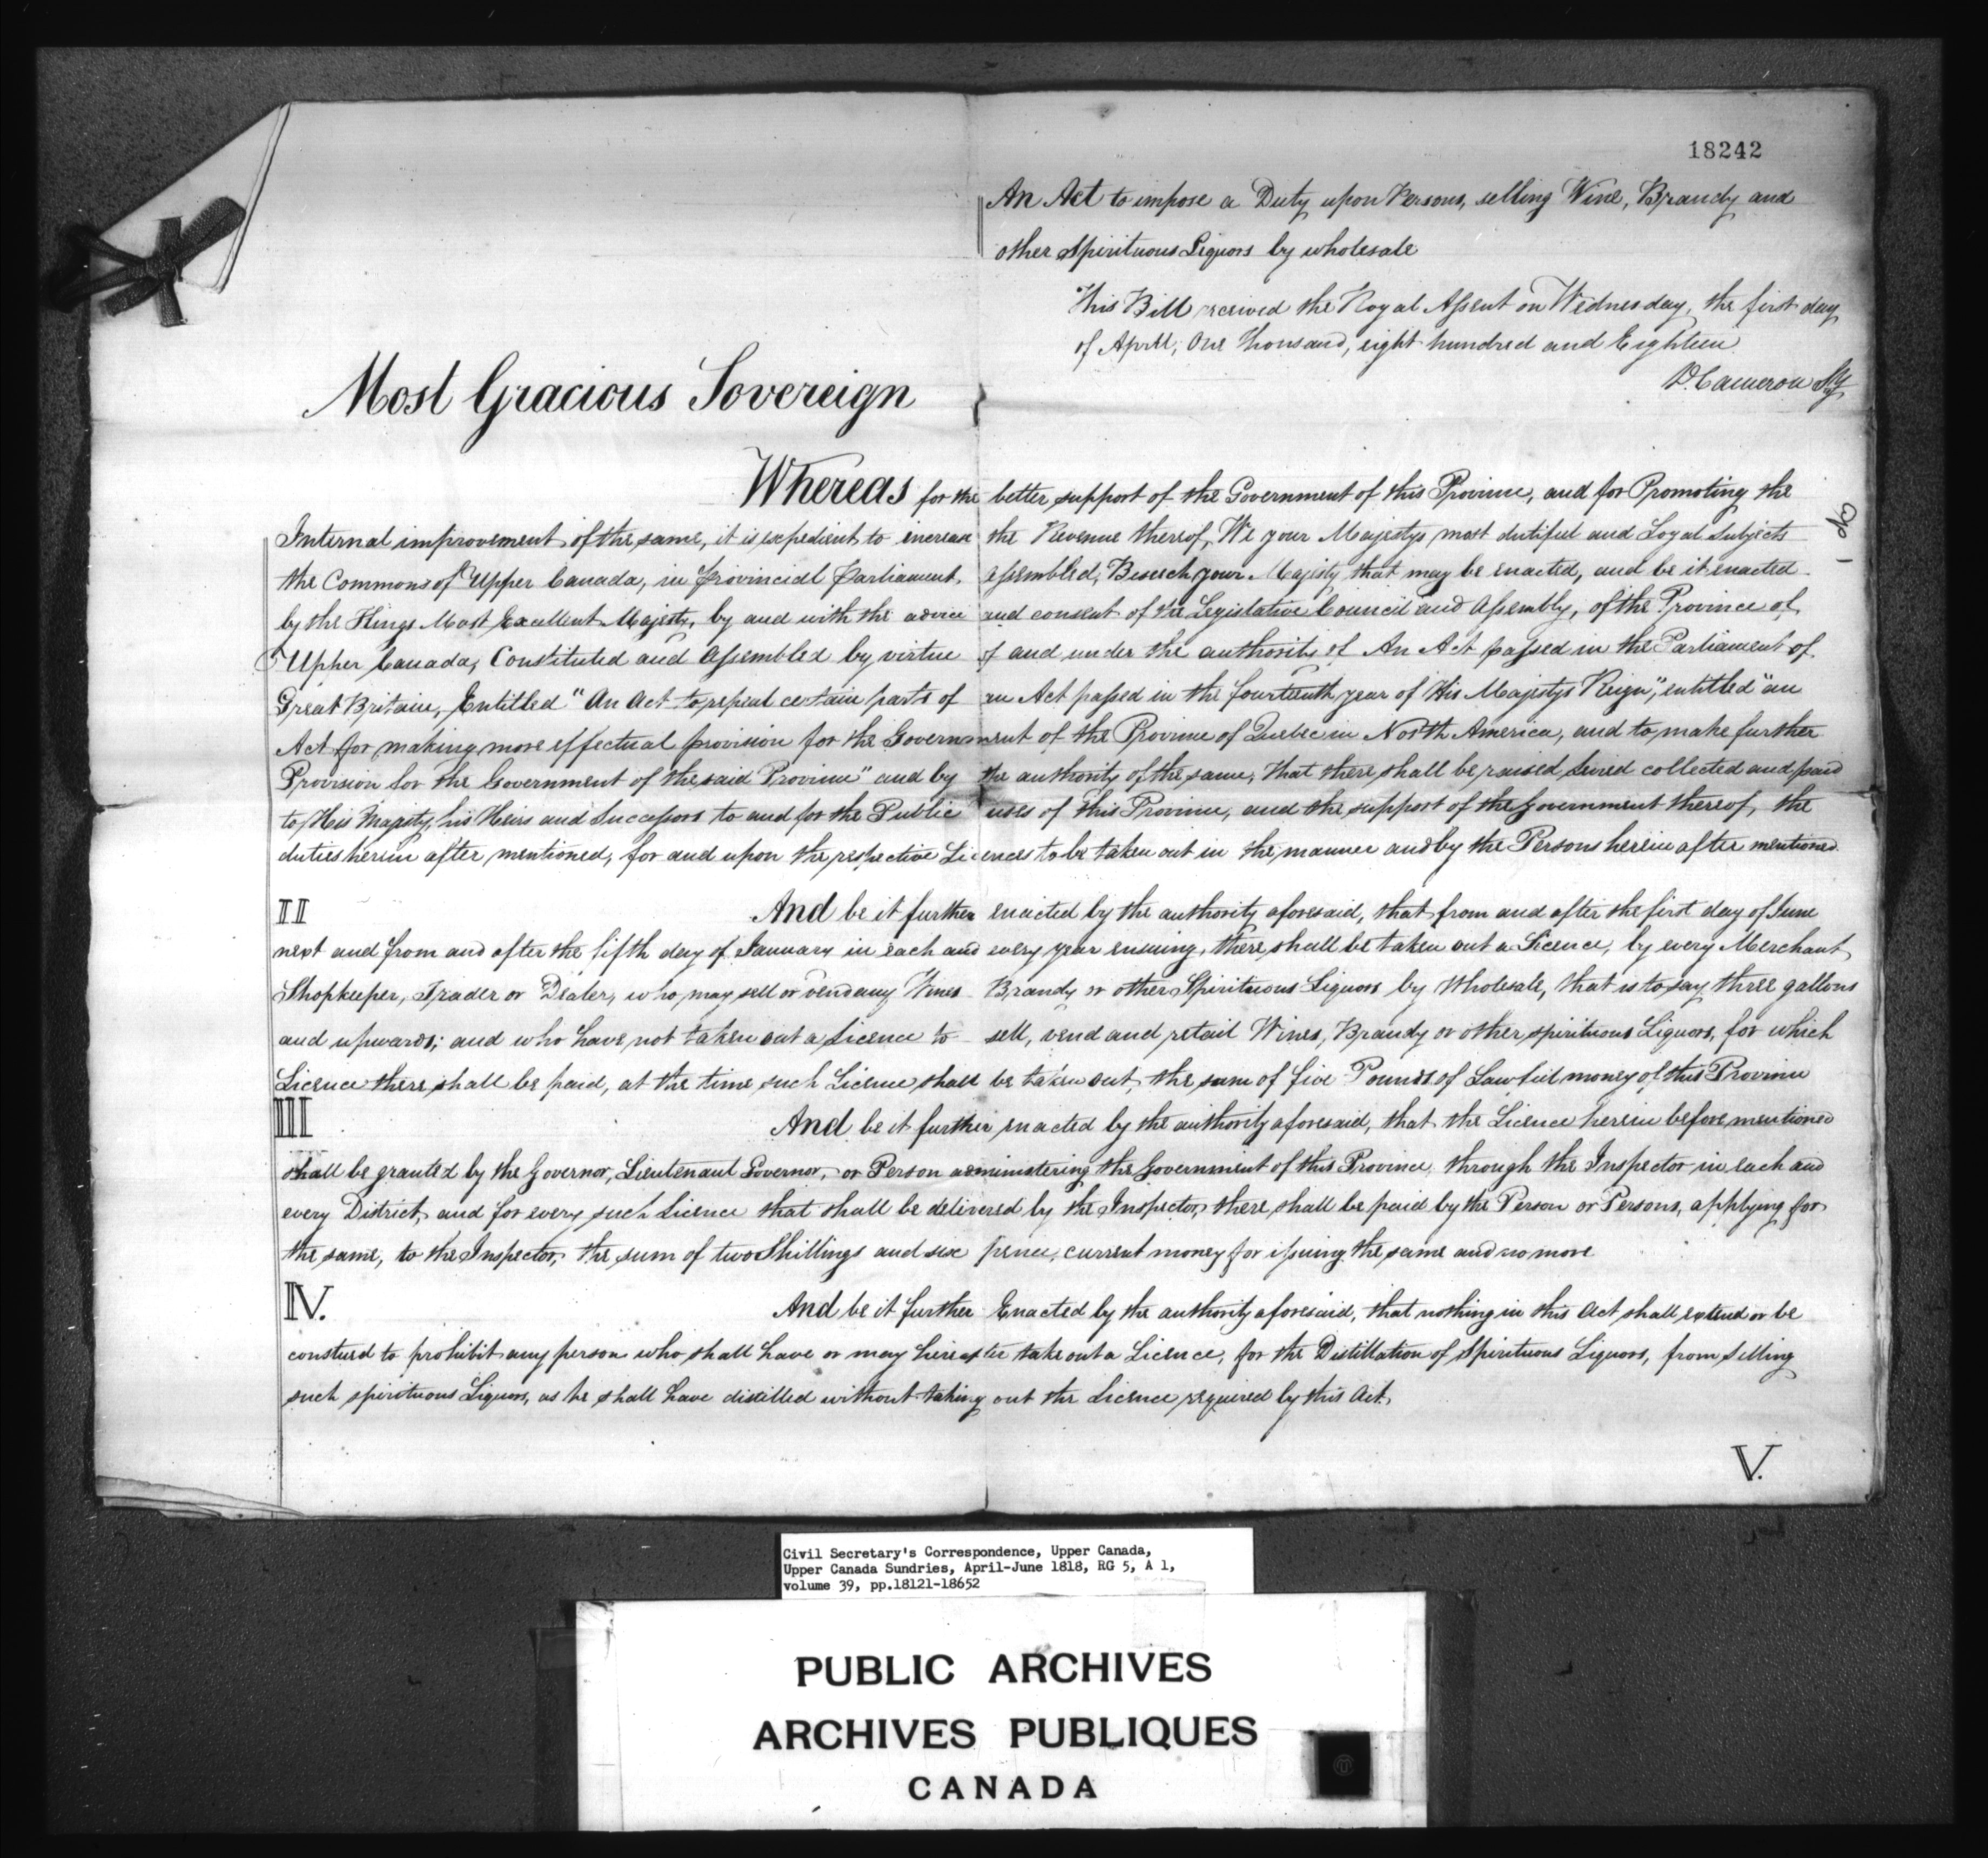 18242
An Act to impose a Duty upon Persons, selling Wine, Brandy and
other Spirituous Liquors by wholesale
This Bill received the Royal Assent on Wednesday, the first day
of April, One thousand, eight hundred and Eighteen
D. Cameron Sy
Most Gracious Sovereign
Whereas for the better support of the Government of this Province, and for Promoting the
Internal improvement of the same, it is expedient to increase the Revenue thereof, We your Majestys most dutiful and Loyal Subjects
the Commons of Upper Canada, in provincial parliament, assembled, Beseech your Majesty that may be enacted, and be it enacted
by the Kings Most Excellent Majesty, by and with the advice and consent of the Legislative Council and Assembly, of the Province of
Upper Canada, Constituted and Assembled by virtue of and under the authority of An Act passed in the Parliament of
Great Britain, Entitled "An Act to repeal certain parts of an Act passed in the fourteenth year of His Majestys Reign," entitled "an
Act for making more effectual provision for the Government of the Province of Quebec in North America, and to make further
Provision for the Government of the said Province" and by the authority of the same, that there shall be raised, levied collected and paid
to His Majesty, his Heirs and Successors to and for the Public uses of this Province, and the support of the Government thereof, the
duties herein after mentioned, for and upon the respective Licences to be taken out in the manner and by the Persons herein after mentioned.
II And be it further enacted by the authority aforesaid, that from and after the first day of June
next and from and after the fifth day of January in each and every year ensuing, there shall be taken out a Licence, by every Merchant,
Shopkeeper, Trader or Dealer, who may sell or vend any Wines Brandy or other Spirituous Liquors by Wholesale, that is to say three gallons
and upwards; and who have not taken out a Licence to sell, vend and retail Wines, Brandy or other spirituous Liquors, for which
Licence there shall be paid, at the time such Licence shall be taken out, the sum of five Pounds of Lawful money of this Province
III And be it further enacted by the authority aforesaid, that the Licence herein before mentioned
shall be granted by the Governor, Lieutenant Governor, or Person administering the Government of this Province, through the Inspector in each and
every District, and for every such Licence that shall be delivered by the Inspector, there shall be paid by the Person or Persons, applying for
the same, to the Inspector, the sum of two Shillings and six pence, current money for issuing the same and no more
IV. And be it further Enacted by the authority aforesaid, that nothing in this Act shall extend or be
construed to prohibit any person who shall have or may hereafter take out a Licence, for the Distillation of Spirituous Liquors, from Selling
such spirituous Liquors, as he shall have distilled without taking out the Licence required by this Act.
V.
Civil Secretary's Correspondence, Upper Canada,
Upper Canada Sundries, April-June 1818, RG 5, A 1,
volume 39, pp.18121-18652
PUBLIC ARCHIVES
ARCHIVES PUBLIQUES
CANADA